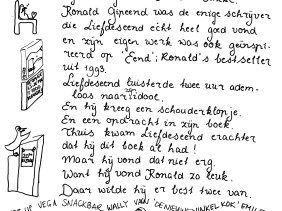 Ronald Gipeend was de enige schrijver
die Liefdeseend echt heel goed vond
en zijn eigen werk was ook geïnspi-
reerd op 'Eend'; Ronald's bestseller
uit 1993.
Liefdeseend luisterde twee uur adem-
loos naar
En hij kreeg een schouderklopje.
En een opdracht in zijn boek.
Thuis kwam Liefdeseend erachter
dat hij dit boek al had!
Maar hij vond dat niet erg.
Want hij vond Ronald zo leuk.
Daar wilde hij er best twee van.
VEGA SNACKBAR WALLY VAN